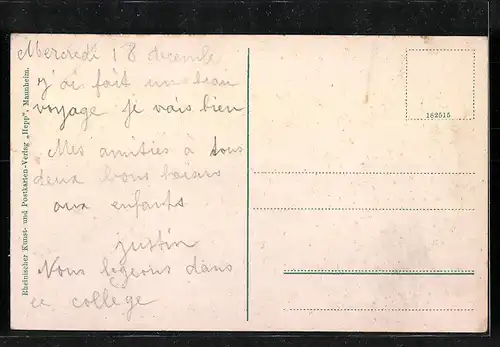 Mercredi 18 decembe
j'ais fait un beau
voyage je vais bien
Mes amitiés à tous
deux bons baisers
aux enfants
justin
Nous logeons dans
ce collège
Rheinischer Kunst- und Postkarten-Verlag „Hepp", Mannheim.
182515